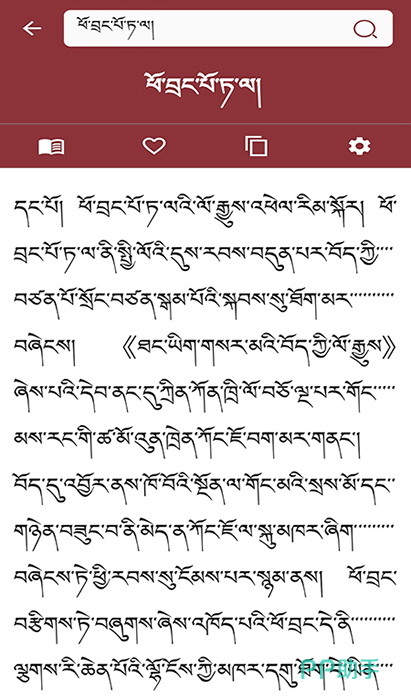 ཕོ་བྲང་པོ་ཏ་ལ།
ཕོ་བྲང་པོ་ཏ་ལ།
དང་པོ། ཕོ་བྲང་པོ་ཏ་ལའི་ལོ་རྒྱུས་འཕེལ་རིམ་སྐོར། ཕོ་
བྲང་པོ་ཏ་ལ་ནི་སྤྱི་ལོའི་དུས་རབས་བདུན་པར་བོད་ཀྱི་་་་
བཙན་པོ་སྲོང་བཙན་སྒམ་པོའི་སྐབས་སུ་ཐོག་མར་་་་་་་་་་
བཞེངས། 《ཐང་ཡིག་གསར་མའི་བོད་ཀྱི་ལོ་རྒྱུས》
ཞེས་པའི་དེབ་ནང་དུ་ཀྲིན་ཀོན་ཁྲི་ལོ་བཅོ་ལྔ་པར་གོང་་་་་
མས་རང་གི་ཚ་མོ་འུན་ཁྲེན་ཀོང་ཇོ་བག་མར་གནང་།
བོད་དུ་འབྱོར་ནས་ཁོ་བོའི་སྔོན་ལ་གོང་མའི་སྲས་མོ་དང་་
གཉེན་བཟུང་བ་ནི་མེད་ན་ཀོང་ཇོ་ལ་སྐུ་མཁར་ཞིག་་་་་་་་་
བཞེངས་ཏེ་ཕྱི་རབས་སུ་ངོམས་པར་སྙམ་ནས། ཕོ་བྲང་
བརྩིགས་ཏེ་བཞུགས་ཞེས་འཁོད་པའི་ཕོ་བྲང་དེ་ནི་་་་་་་
ལྕགས་རི་ཆེན་པོའི་ལྷོ་ངོས་ཀྱི་མཁར་དགུ་ཐོག་དེ་ཡིན་་་་
PP助手